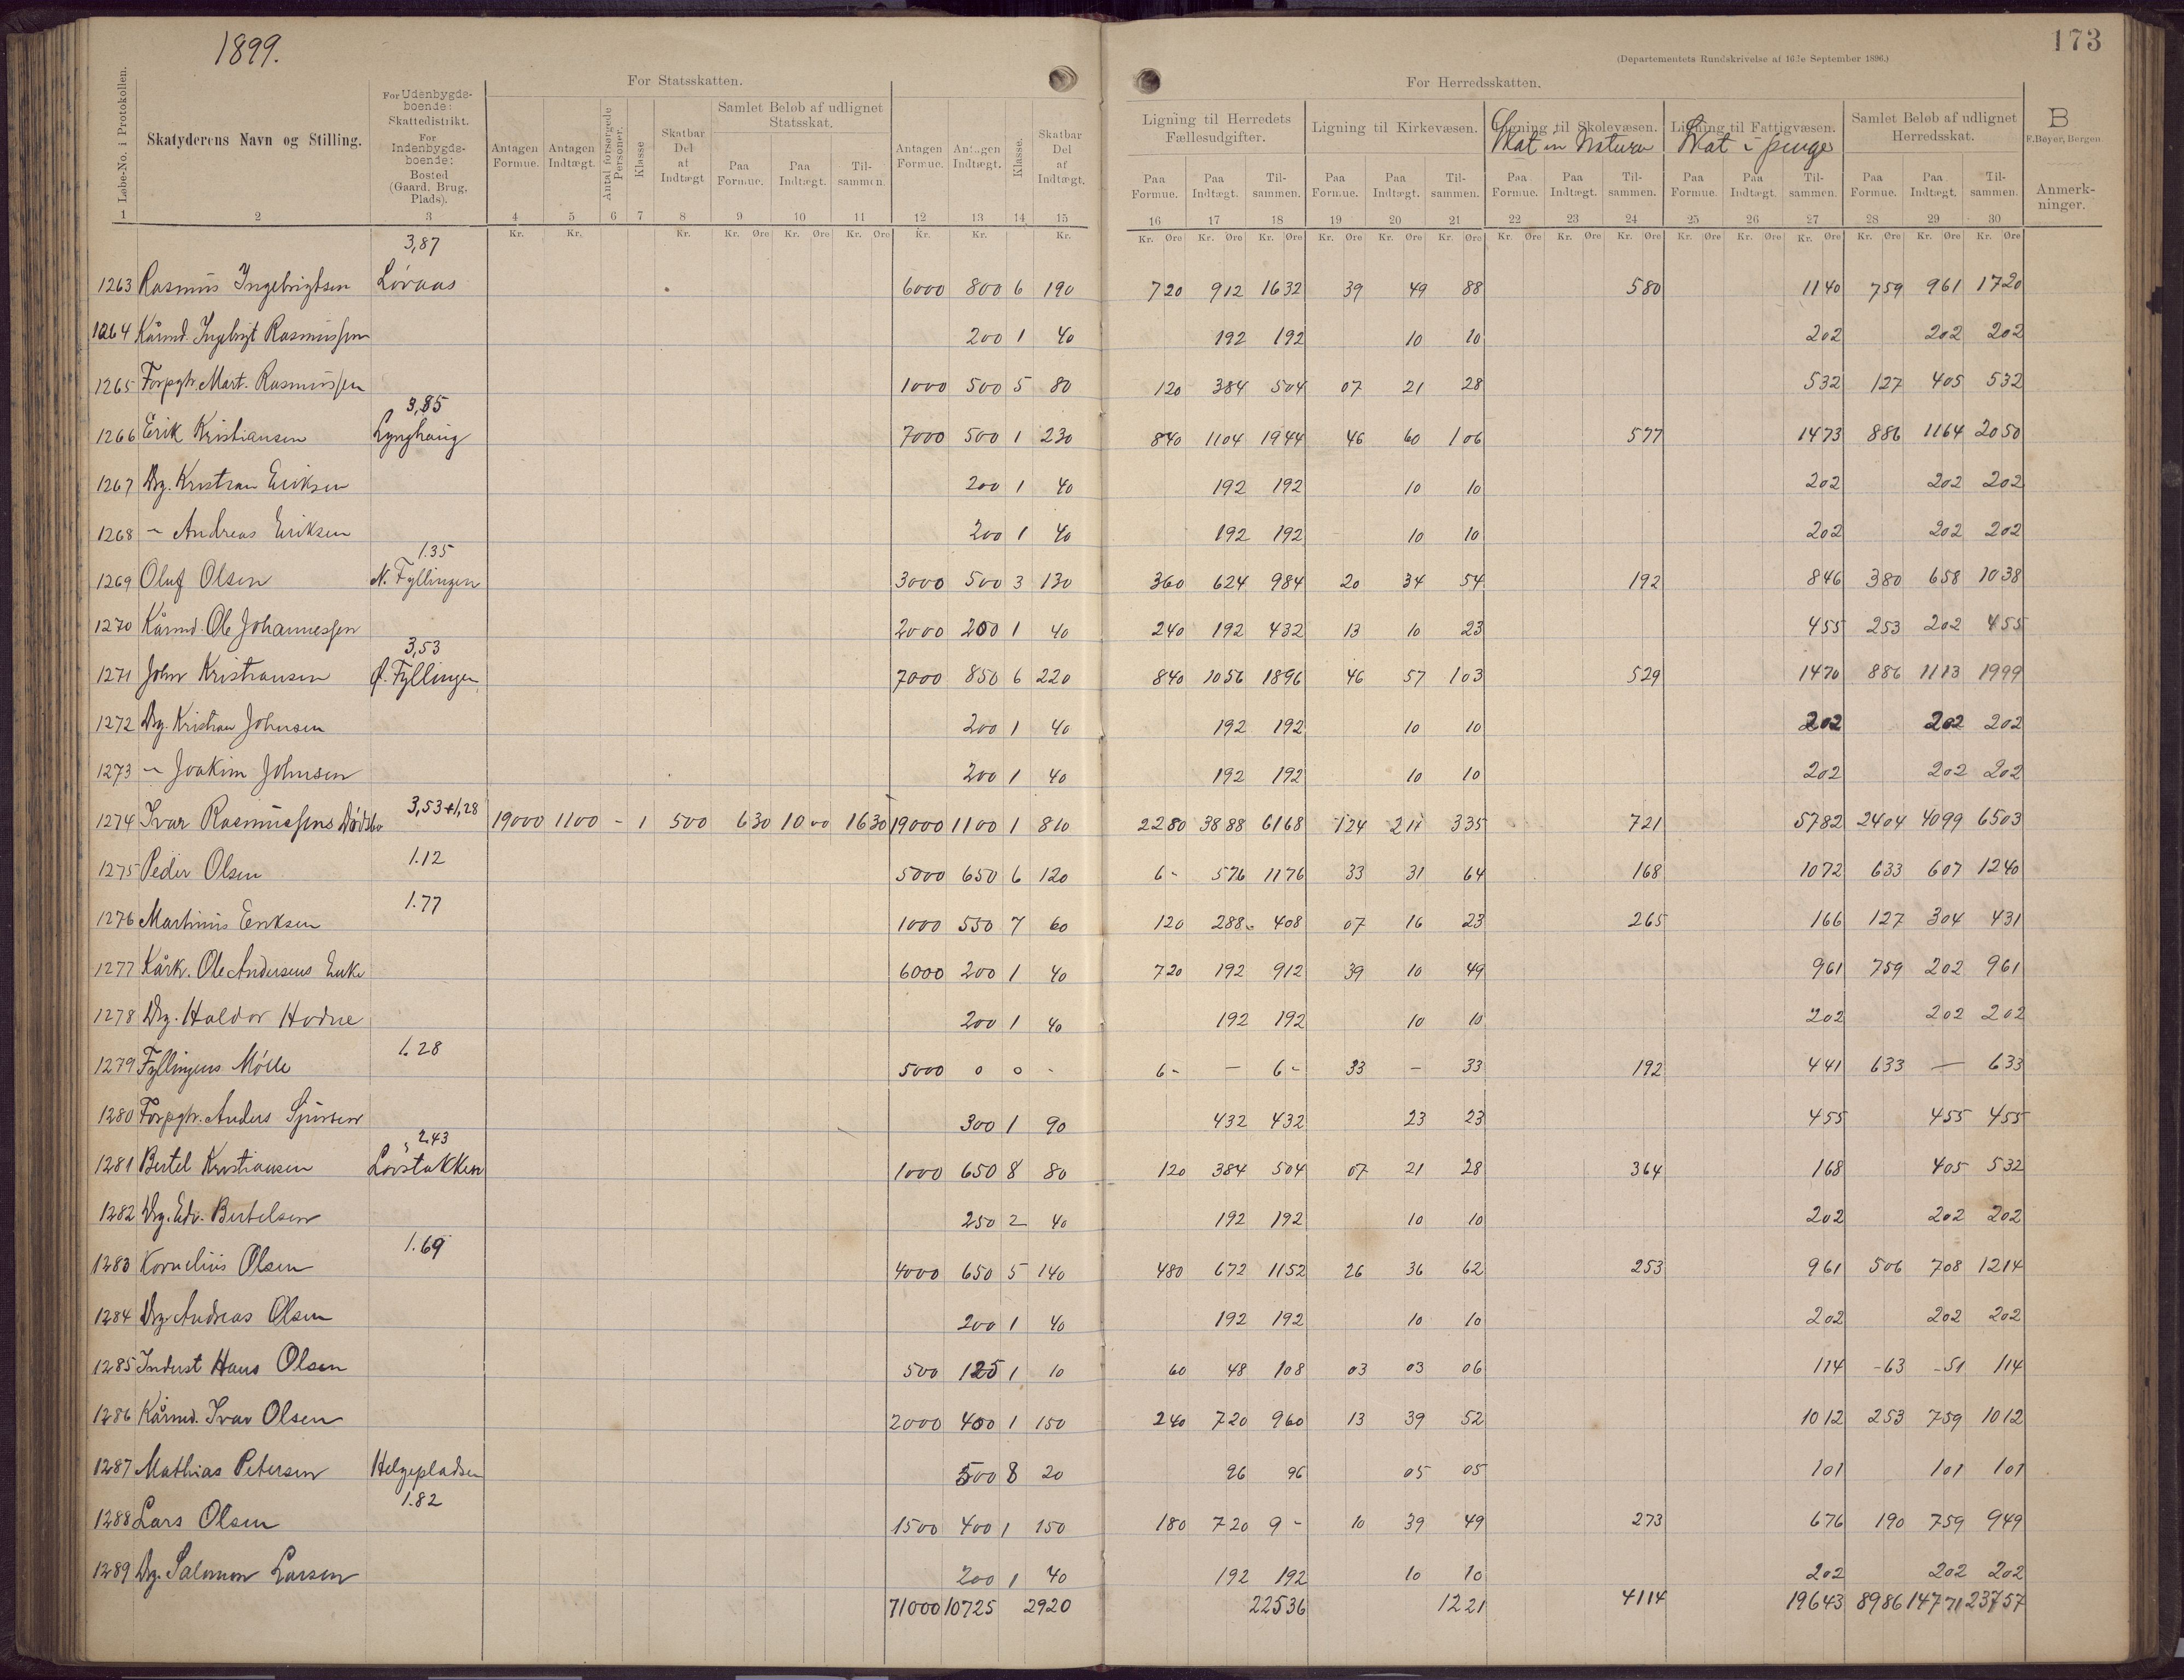 1899.
173
(Departementets Rundskrivelse af 16de September 1896.)
For Statsskatten.
For Herredsskatten.
Løbe-No. i Protokollen.
Skatyderens Navn og Stilling.
For Udenbygdsboende: Skattedistrikt. For Indenbygdsboende: Bosted (Gaard, Brug, Plads).
Antagen Formue.
Antagen Indtægt.
Antal forsørgede Personer.
Klasse
Skatbar Del af Indtægt
Samlet Beløb af udlignet Statsskat.
Paa Formue. Paa Indtægt. Tilsammen.
Antagen Formue.
Antagen Indtægt.
Klasse.
Skatbar Del af Indtægt.
Ligning til Herredets Fællesudgifter.
Paa Formue. Paa Indtægt. Tilsammen.
Ligning til Kirkevæsen.
Paa Formue. Paa Indtægt. Tilsammen.
Ligning til Skolevæsen.
Skat in Natura
Paa Formue. Paa Indtægt. Tilsammen.
Ligning til Fattigvæsen.
Skat i penge
Paa Formue. Paa Indtægt. Tilsammen.
Samlet Beløb af udlignet Herredsskat.
Paa Formue. Paa Indtægt. Tilsammen.
B
F. Beyer, Bergen.
Anmerkninger.
1 2 3 4 5 6 7 8 9 10 11 12 13 14 15 16 17 18 19 20 21 22 23 24 25 26 27 28 29 30
3,87
1263 Rasmus Ingebrigtsen Løvaas 6000 800 6 190 720 912 1632 39 49 88 580 1140 759 961 1720
1264 Kårmd. Ingebrigt Rasmussen 200 1 40 192 192 10 10 202 202 202
1265 Forpgtr. Mart. Rasmussen 1000 500 5 80 120 384 504 07 21 28 532 127 405 532
3,85
1266 Erik Kristiansen Lynghaug 7000 500 1 230 840 1104 1944 46 60 106 577 1473 886 1164 2050
1267 Drg. Kristian Eriksen 200 1 40 192 192 10 10 202 202 202
1268 - Andreas Eriksen 200 1 40 192 192 10 10 202 202 202
1.35
1269 Oluf Olsen N. Fyllingen 3000 500 3 130 360 624 984 20 34 54 192 846 380 658 1038
1270 Kårmd. Ole Johannessen 2000 200 1 40 240 192 432 13 10 23 455 253 202 455
3,53
1271 John Kristiansen Ø. Fyllingen 7000 850 6 220 840 1056 1896 46 57 103 529 1470 886 1113 1999
1272 Drg. Kristian Johnsen 200 1 40 192 192 10 10 202 202 202
1273 - Joakim Johnsen 200 1 40 192 192 10 10 202 202 202
1274 Ivar Rasmussens Dødsbo 3,53+1,28 19000 1100 - 1 500 630 10 00 1630 19000 1100 1 810 2280 3888 6168 124 211 335 721 5782 2404 4099 6503
1275 Peder Olsen 1.12 5000 650 6 120 6- 576 1176 33 31 64 168 1072 633 607 1240
1276 Martinus Eriksen 1.77 1000 550 7 60 120 288 408 07 16 23 265 166 127 304 431
1277 Kårk. Ole Andersens Enke 6000 200 1 40 720 192 912 39 10 49 961 759 202 961
1278 Drg. Haldor Hodne 200 1 40 192 192 10 10 202 202 202
1279 Fyllingens Mølle 1.28 5000 0 0 - 6- - 6- 33 - 33 192 441 633 - 633
1280 Forpgtr. Anders Sjursen 300 1 90 432 432 23 23 455 455 455
2,43
1281 Bertel Kristiansen Løvstakken 1000 650 8 80 120 384 504 07 21 28 364 168 405 532
1282 Drg. Edv. Bertelsen 250 2 40 192 192 10 10 202 202 202
1283 Kornelius Olsen 1.69 4000 650 5 140 480 672 1152 26 36 62 253 961 506 708 1214
1284 Drg. Andreas Olsen 200 1 40 192 192 10 10 202 202 202
1285 Inderst Hans Olsen 500 125 1 10 60 48 108 03 03 06 114 -63 -51 114
1286 Kårmd. Ivar Olsen 2000 400 1 150 240 720 960 13 39 52 1012 253 759 1012
1287 Mathias Petersen Helgepladsen 500 8 20 96 96 05 05 101 101 101
1.82
1288 Lars Olsen 1500 400 1 150 180 720 9- 10 39 49 273 676 190 759 949
1289 Drg. Salomon Larsen 200 1 40 192 192 10 10 202 202 202
71000 10725 2920 22536 1221 4114 19643 8986 14771 23757